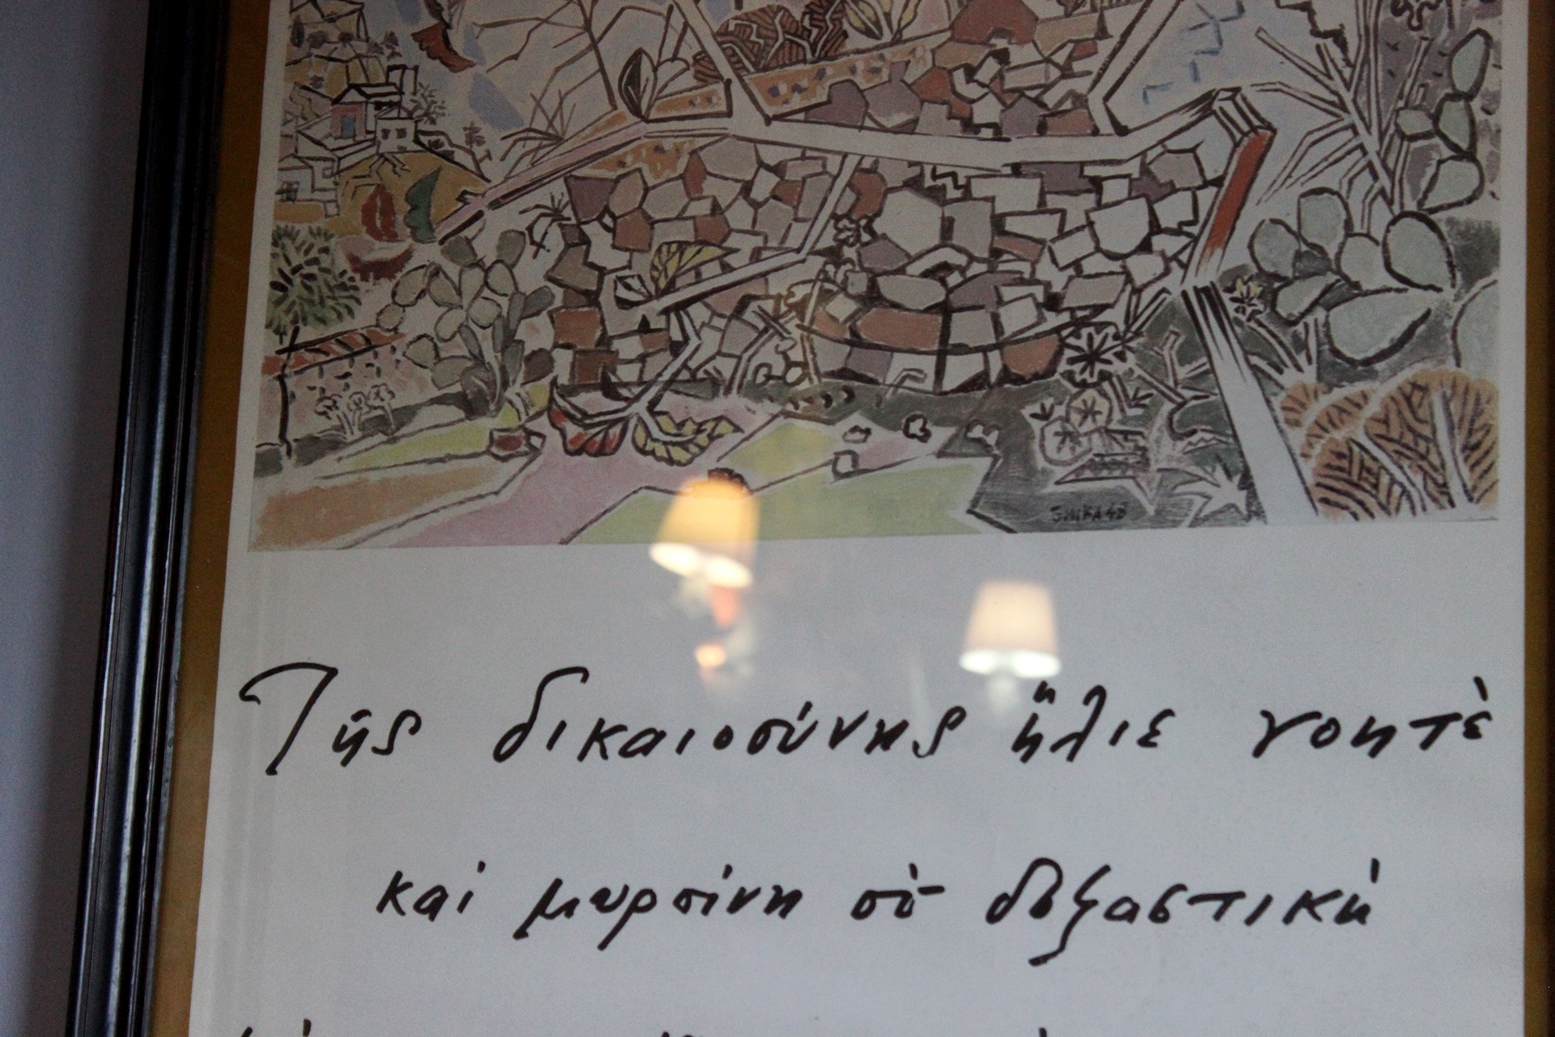 Τῆς δικαιοσύνης ἥλιε νοητὲ
καὶ μυρσίνη σὺ δοξαστικὴ